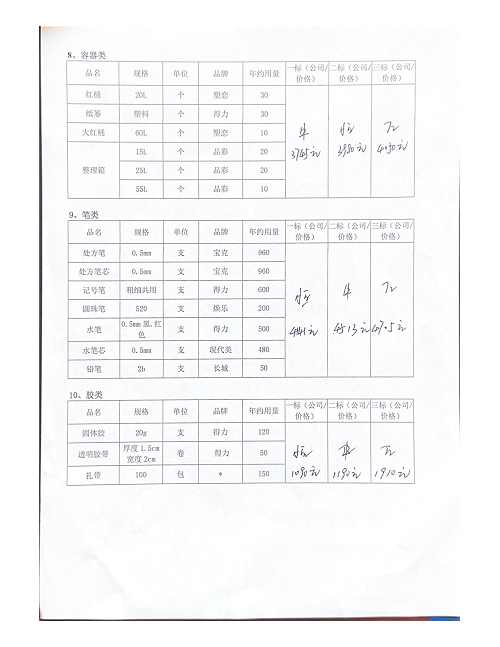 8、容器类
品名 规格 单位 品牌 年约用量 一标（公司/价格） 二标（公司/价格） 三标（公司/价格）
红桶 20L 个 塑恋 30
纸篓 塑料 个 得力 30
大红桶 60L 个 塑恋 10
整理箱 15L 个 品彩 20
25L 个 品彩 20
55L 个 品彩 10
3745元 3990元 4050元
9、笔类
品名 规格 单位 品牌 年约用量 一标（公司/价格） 二标（公司/价格） 三标（公司/价格）
处方笔 0.5mm 支 宝克 960
处方笔芯 0.5mm 支 宝克 960
记号笔 粗细共用 支 得力 600
圆珠笔 520 支 焕乐 200
水笔 0.5mm 黑,红色 支 得力 500
水笔芯 0.5mm 支 现代美 480
铅笔 2b 支 长城 50
4513元
10、胶类
品名 规格 单位 品牌 年约用量 一标（公司/价格） 二标（公司/价格） 三标（公司/价格）
固体胶 20g 支 得力 120
透明胶带 厚度 1.5cm 宽度 2cm 卷 得力 50
扎带 100 包 * 150
1090元 1190元 1910元